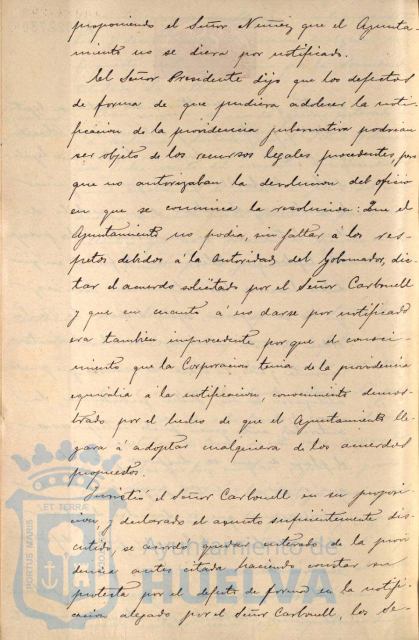 proponiendo el Señor Nuñez que el Ayunta-
miento no se diera por notificado.
El Señor Presidente dijo que los defectos
de forma de que pudiera adolecer la noti-
ficacion de la providencia gubernativa podrian
ser objeto de los recursos legales procedentes, pero
que no autorizaban la devolucion del oficio
en que se comunica la resolucion: Que el
Ayuntamiento no podia, sin faltar á los res-
petos debidos á la autoridad del Gobernador, dic-
tar el acuerdo solicitado por el Señor Carbonell
y que en cuanto á no darse por notificado
era tambien improcedente por que el conoci-
miento que la Corporacion tenia de la providencia
equivalia á la notificacion, conocimiento demos-
trado por el hecho de que el Ayuntamiento lle-
gara á adoptar cualquiera de los acuerdos
propuestos.
Insistió el Señor Carbonell en su proposi-
cion, y declarado el asunto suficientemente dis-
cutido, se acordó quedar enterado de la provi-
dencia antes citada haciendo constar su
protesta por el defecto de forma en la notifi-
cacion alegado por el Señor Carbonell, los Se-
PORTUS MARIS ET TERRAE
Ayuntamiento de
HUELVA